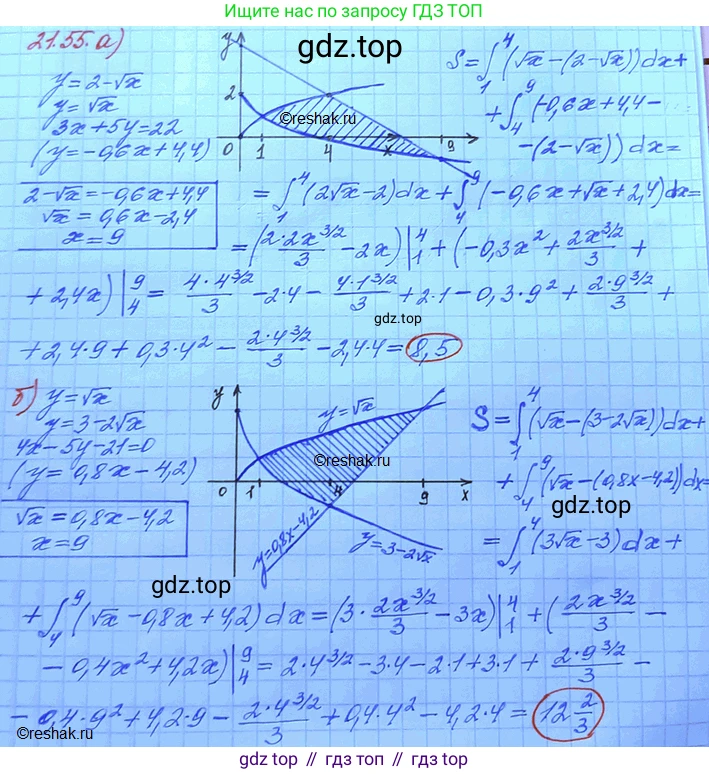 Ищите нас по запросу ГДЗ ТОП
21.55. а)
y = 2 - √x
y = √x
3x + 5y = 22
(y = -0,6x + 4,4)
2 - √x = -0,6x + 4,4
√x = 0,6x - 2,4
x = 9
y
2
0 1 4 x 9
gdz.top
©reshak.ru
S = ∫₁⁴ (√x - (2 - √x)) dx +
+ ∫₄⁹ (-0,6x + 4,4 -
- (2 - √x)) dx =
= ∫₁⁴ (2√x - 2) dx + ∫₄⁹ (-0,6x + √x + 2,4) dx =
= (2·2x^(3/2)/3 - 2x) |₁⁴ + (-0,3x² + 2x^(3/2)/3 +
+ 2,4x) |₄⁹ = 4·4^(3/2)/3 - 2·4 - 4·1^(3/2)/3 + 2·1 - 0,3·9² + 2·9^(3/2)/3 +
gdz.top
+ 2,4·9 + 0,3·4² - 2·4^(3/2)/3 - 2,4·4 = 8,5
б) y = √x
y = 3 - 2√x
4x - 5y - 21 = 0
(y = 0,8x - 4,2)
√x = 0,8x - 4,2
x = 9
y
y = √x
©reshak.ru
0 1 4 9 x
y = 0,8x - 4,2
y = 3 - 2√x
gdz.top
S = ∫₁⁴ (√x - (3 - 2√x)) dx +
+ ∫₄⁹ (√x - (0,8x - 4,2)) dx =
gdz.top
= ∫₁⁴ (3√x - 3) dx +
+ ∫₄⁹ (√x - 0,8x + 4,2) dx = (3·2x^(3/2)/3 - 3x) |₁⁴ + (2x^(3/2)/3 -
- 0,4x² + 4,2x) |₄⁹ = 2·4^(3/2) - 3·4 - 2·1 + 3·1 + 2·9^(3/2)/3 -
- 0,4·9² + 4,2·9 - 2·4^(3/2)/3 + 0,4·4² - 4,2·4 = 12 2/3
©reshak.ru
gdz top // гдз топ // gdz.top